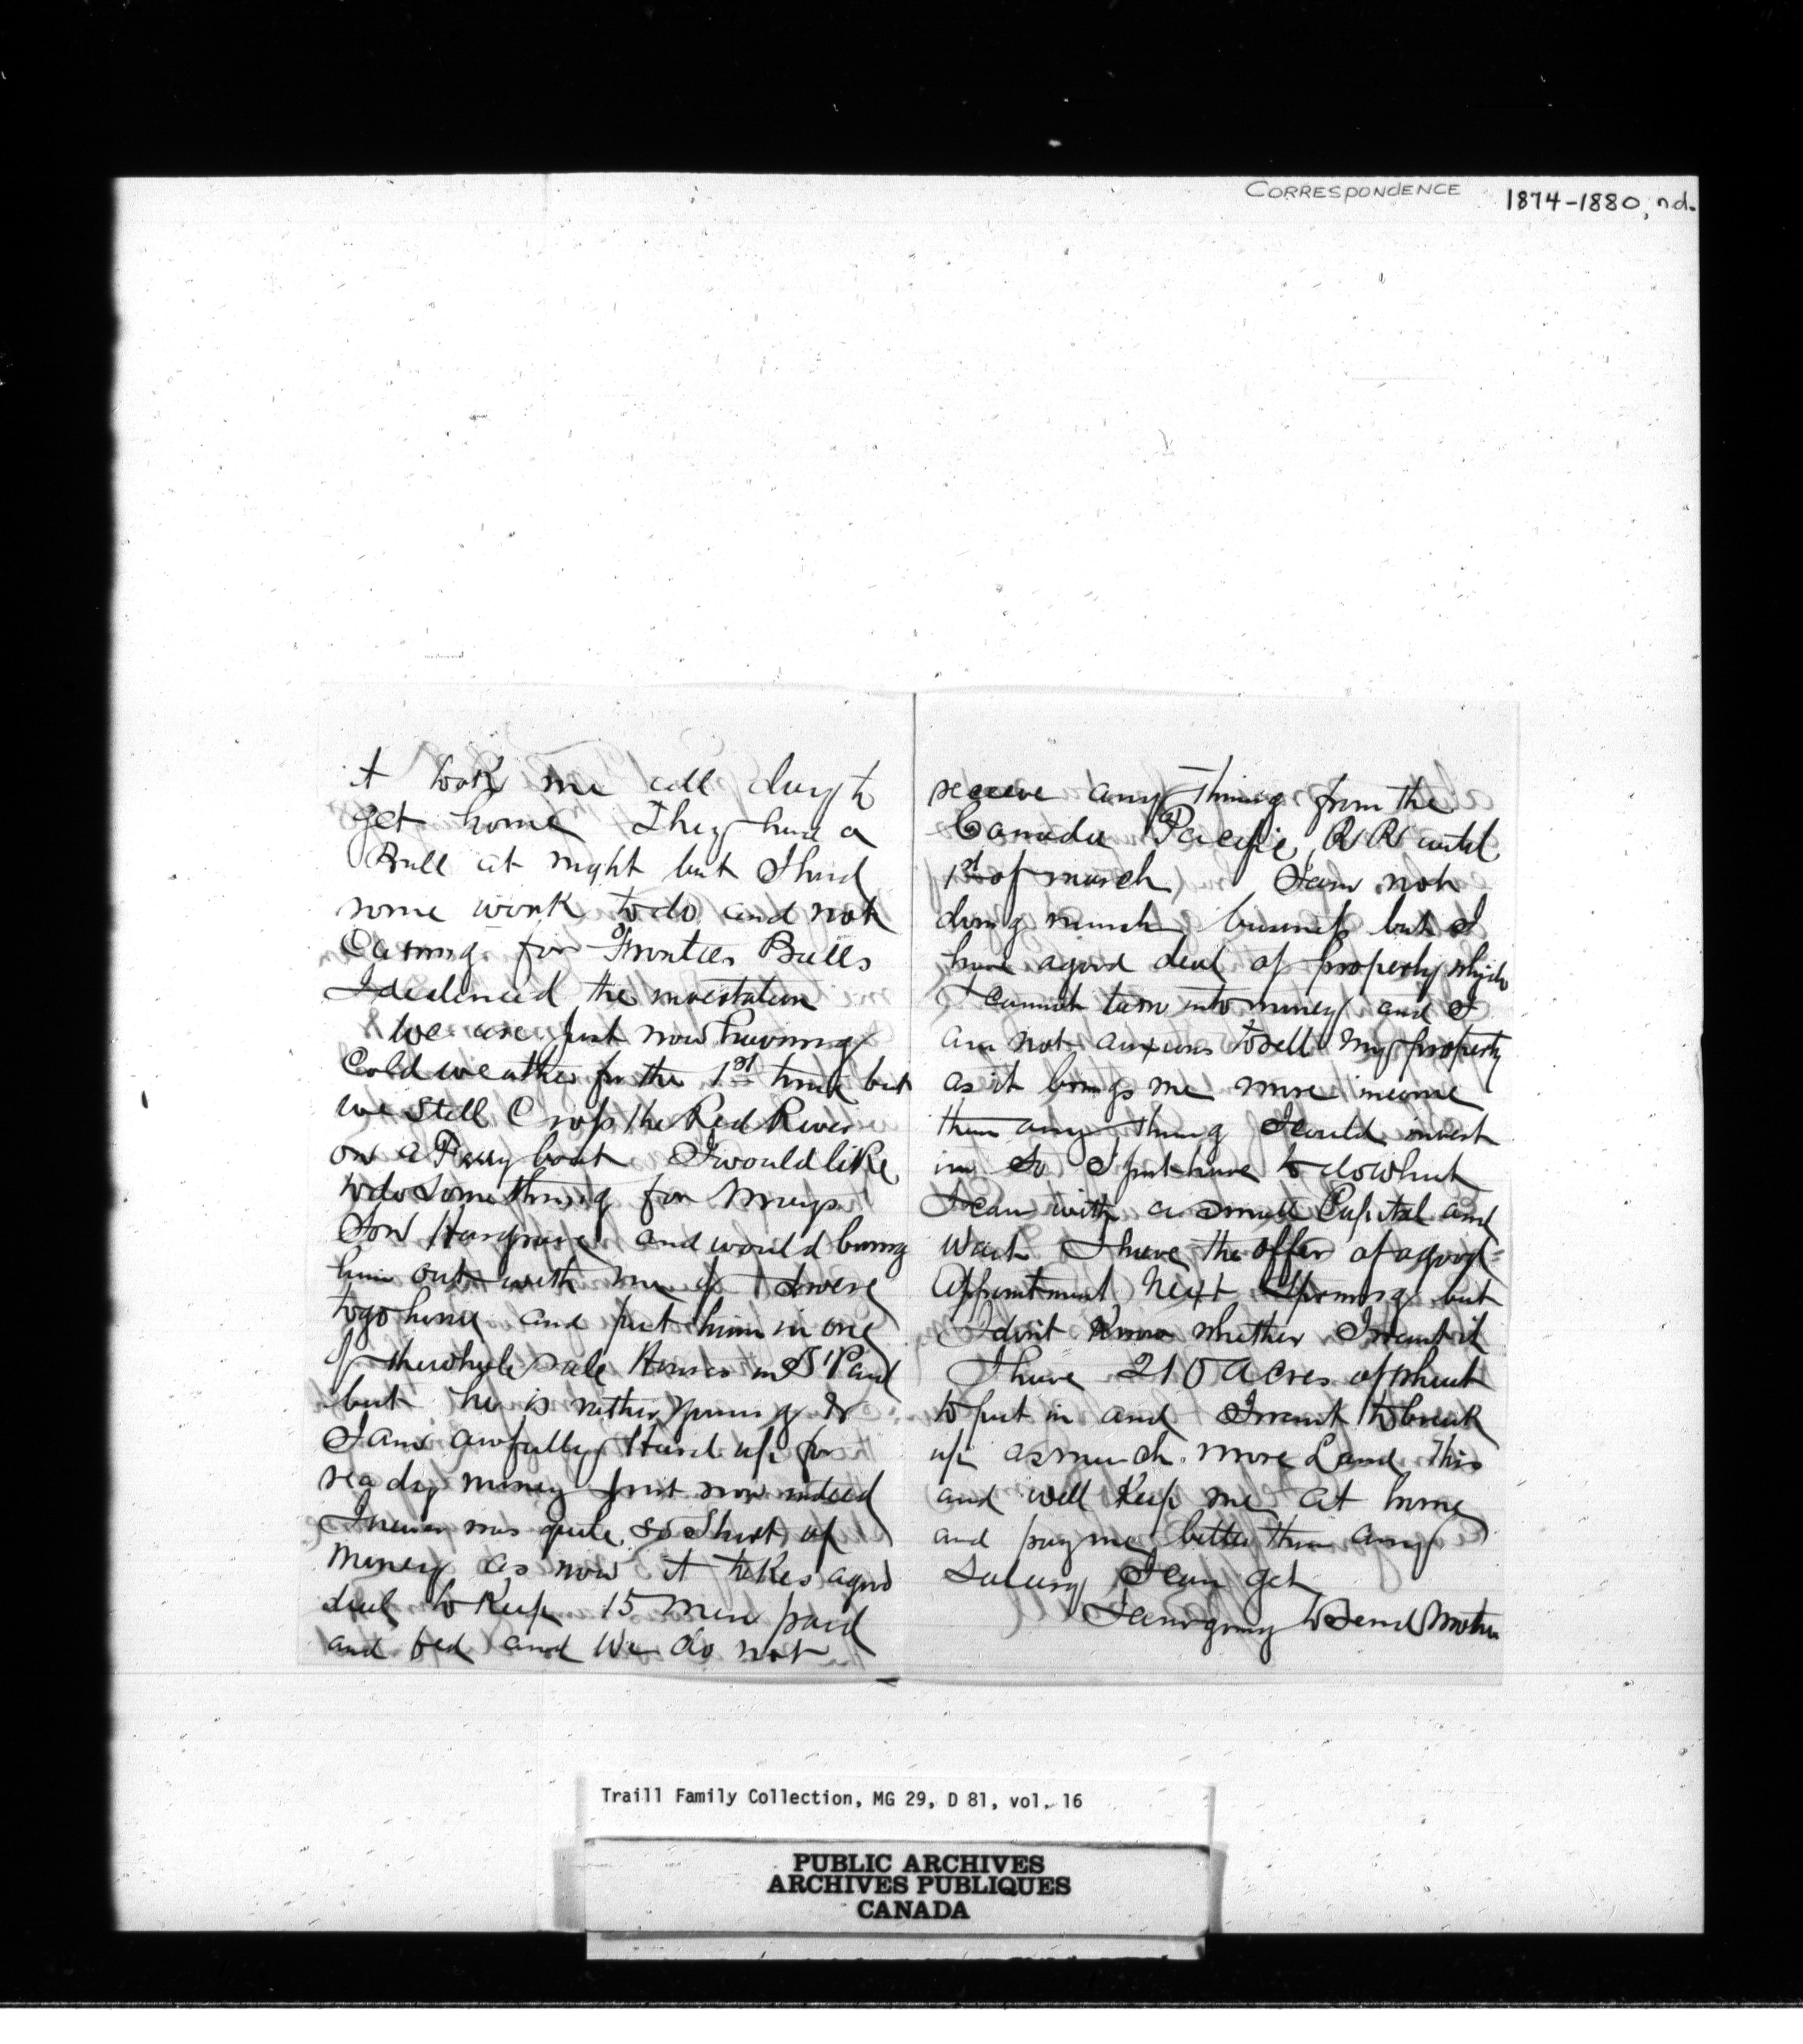 CORRESPONDENCE 1874-1880, n.d.
it took me all day to
get home They had a
Ball at night but I had
some work to do and not
Caring for Frontier Balls
I declined the invitation
We are just now having
Cold weather for the 1st time but
we still Cross the Red River
on a Ferry boat I would like
to do Some thing for Marys
Son Hargrave and would bring
him out with me if I were
to go home and put him in one
of the whole sale Houses in St Paul
but he is rather young &
I am awfully Hard up for
ready money just now indeed
I never was quite so Short of
money as now it takes a good
deal to Keep 15 men paid
and fed and We do not
receive any Thing from the
Canada Pacific R R until
1st of march I am not
doing much business but I
have a good deal of property which
I cannot turn into money and I
am not anxious to sell my property
as it brings me more income
than any thing I could invest
in So I just have to do what
I can with a small Capital and
Wait I have the offer of a good
Appointment Next Spring but
I don't Know whether I want it
I have 210 Acres of wheat
to put in and I want to break
up as much more Land This
and will Keep me at home
and pay me better than any
Salary I can get
I am going to Send Mother
Traill Family Collection, MG 29, D 81, vol. 16
PUBLIC ARCHIVES
ARCHIVES PUBLIQUES
CANADA